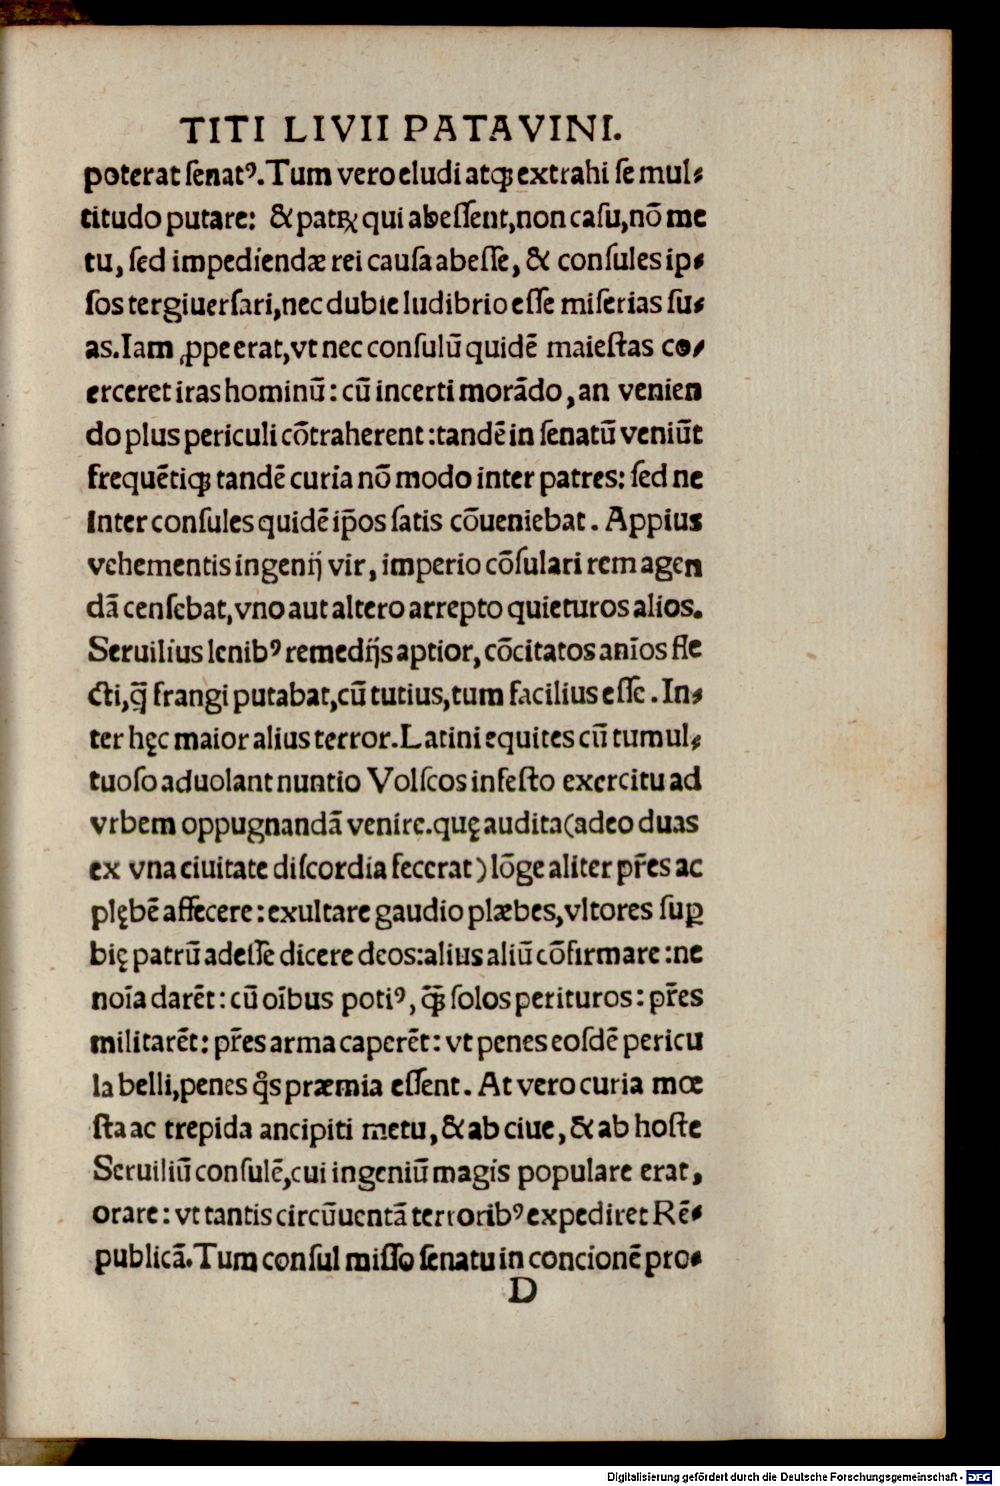 TITI LIVII PATAVINI.
poterat ſenatꝰ. Tum vero eludi atqꝫ extrahi ſe mul⸗
titudo putare: & patꝝ qui abeſſent, non caſu, nō me
tu, ſed impediendæ rei cauſa abeſſe, & conſules ip⸗
ſos tergiuerſari, nec dubie ludibrio eſſe miſerias ſu⸗
as. Iam ꝓpe erat, vt nec conſulū quidē maieſtas co⸗
erceret iras hominū: cū incerti morādo, an venien
do plus periculi cōtraherent: tandē in ſenatū veniūt
frequētiqꝫ tandē curia nō modo inter patres: ſed ne
inter conſules quidē ip̄os ſatis cōueniebat. Appius
vehementis ingenij vir, imperio cōſulari rem agen
dā cenſebat, vno aut altero arrepto quieturos alios.
Seruilius lenibꝰ remedijs aptior, cōcitatos anīos fle
cti, q̄ frangi putabat, cū tutius, tum facilius eſſe. In⸗
ter hęc maior alius terror. Latini equites cū tumul⸗
tuoſo aduolant nuntio Volſcos infeſto exercitu ad
vrbem oppugnandā venire. quę audita (adeo duas
ex vna ciuitate diſcordia fecerat) lōge aliter pr̄es ac
plębē affecere: exultare gaudio plæbes, vltores ſuꝑ
bię patrū adeſſe dicere deos: alius aliū cōfirmare: ne
noīa darēt: cū oībus potiꝰ, q̄ꝫ ſolos perituros: pr̄es
militarēt: pr̄es arma caperēt: vt penes eoſdē pericu
la belli, penes q̄s præmia eſſent. At vero curia mœ
ſta ac trepida ancipiti metu, & ab ciue, & ab hoſte
Seruiliū conſulē, cui ingeniū magis populare erat,
orare: vt tantis circūuentā terroribꝰ expediret Rē⸗
publicā. Tum conſul miſſo ſenatu in concionē pro⸗
D
Digitalisierung gefördert durch die Deutsche Forschungsgemeinschaft - DFG